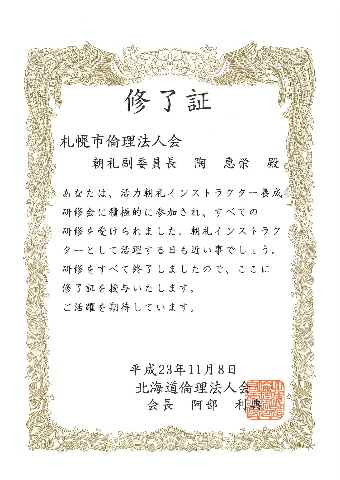 修了証
札幌市倫理法人会
朝礼副委員長 陶 恵栄 殿
あなたは、活力朝礼インストラクター養成
研修会に積極的に参加され、すべての
研修を受けられました。朝礼インストラク
ターとして活躍する日も近い事でしょう。
研修をすべて終了しましたので、ここに
修了証を授与いたします。
ご活躍を期待しています。
平成23年11月8日
北海道倫理法人会
会長 阿部 利典